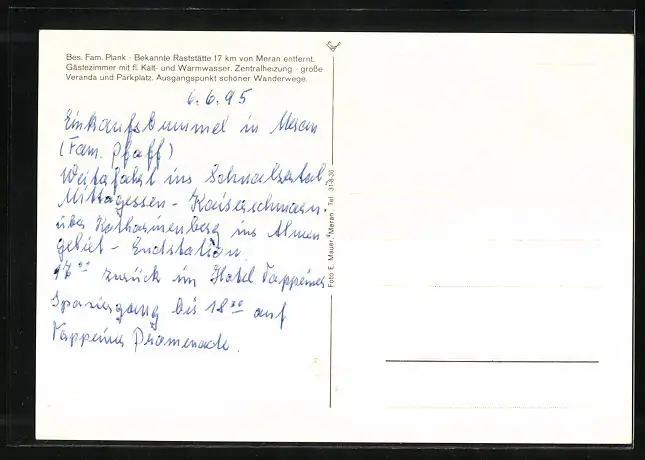 Bes. Fam. Plank · Bekannte Raststätte 17 km von Meran entfernt.
Gästezimmer mit fl. Kalt- und Warmwasser. Zentralheizung · große
Veranda und Parkplatz. Ausgangspunkt schöner Wanderwege.
6.6.95
Einkaufsbummel in Meran
(Fam. Pfaff)
Weiterfahrt ins Schnalsertal
Mittagessen - Kaiserschmarn.
über Katharinenberg ins Almen
gebiet - Endstation.
17 00 zurück im Hotel Tappeiner
Spaziergang bis 18 30 auf
Tappeiner Promenade.
Foto E. Mauer, Meran, Tel. 31-8-30